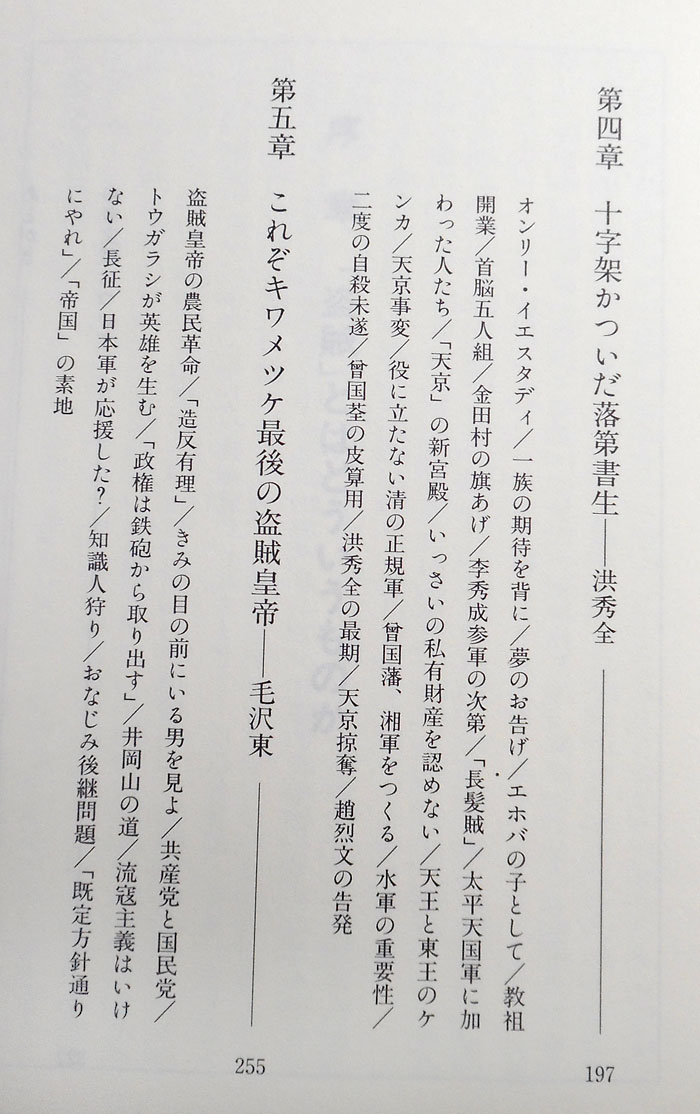 第四章　十字架かついだ落第書生――洪秀全――197
オンリー・イエスタディ／一族の期待を背に／夢のお告げ／エホバの子として／教祖
開業／首脳五人組／金田村の旗あげ／李秀成参軍の次第／「長髪賊」／太平天国軍に加
わった人たち／「天京」の新宮殿／いっさいの私有財産を認めない／天王と東王のケ
ンカ／天京事変／役に立たない清の正規軍／曾国藩、湘軍をつくる／水軍の重要性／
二度の自殺未遂／曾国荃の皮算用／洪秀全の最期／天京掠奪／趙烈文の告発
第五章　これぞキワメツケ最後の盗賊皇帝――毛沢東――255
盗賊皇帝の農民革命／「造反有理」／きみの目の前にいる男を見よ／共産党と国民党／
トウガラシが英雄を生む／「政権は鉄砲から取り出す」／井岡山の道／流寇主義はいけ
ない／長征／日本軍が応援した？／知識人狩り／おなじみ後継問題／「既定方針通り
にやれ」／「帝国」の素地